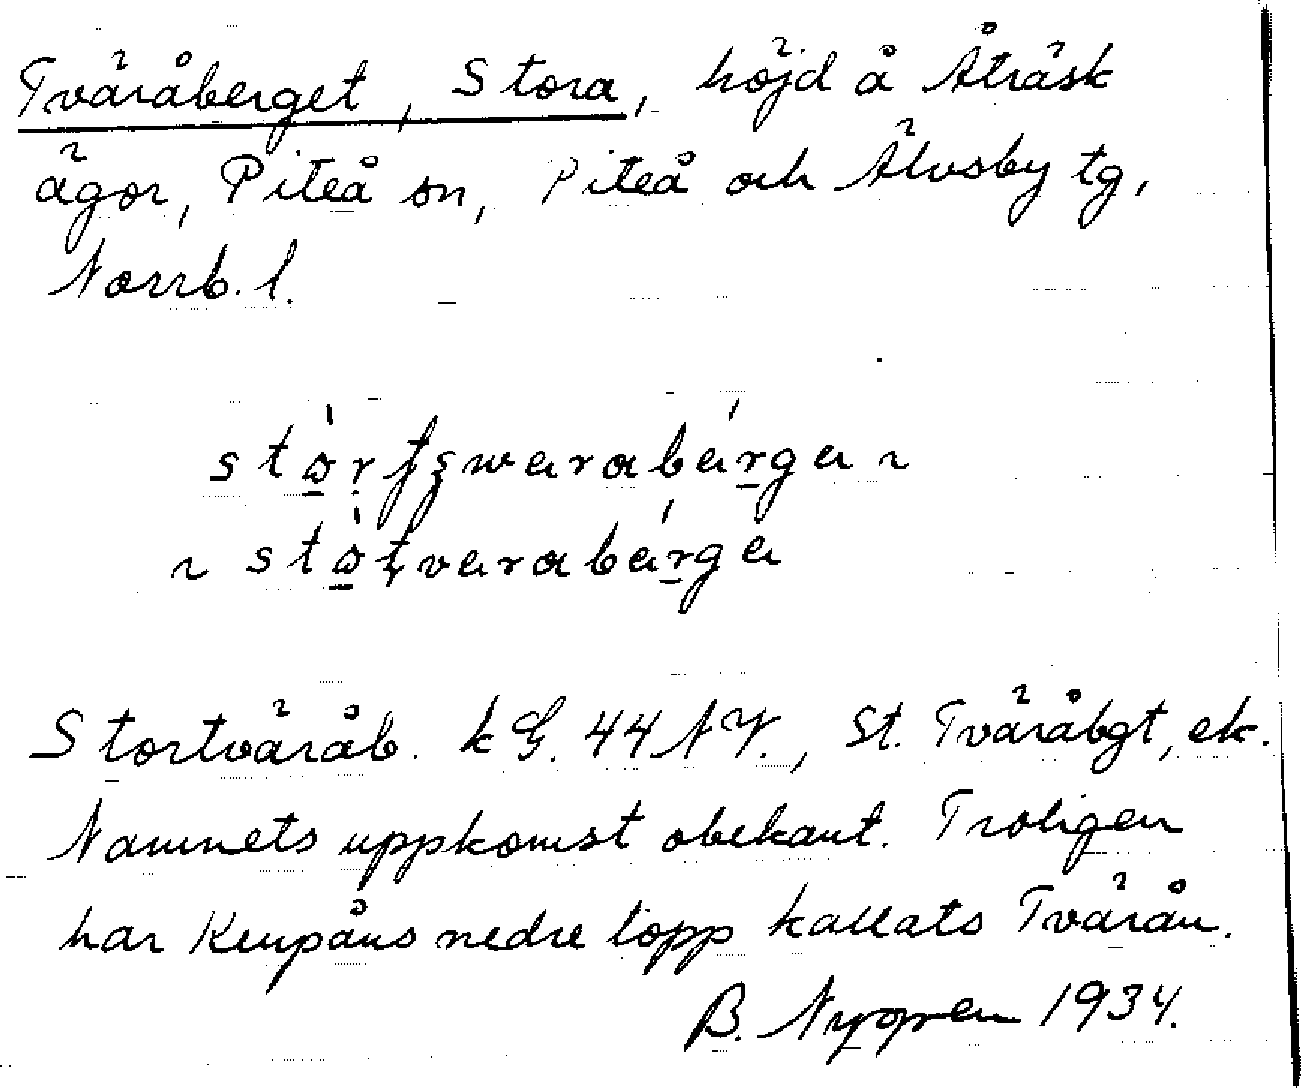 Tväråberget, Stora, höjd å Åträsk
ägor, Piteå sn, Piteå och Älvsby tg,
Norrb. l.
Stortväråb. kG. 44 NV., St. Tväråbgt, ek.
Namnets uppkomst obekant. Troligen
har Keupåns nedre lopp kallats Tvärån.
B. Nygren 1934.